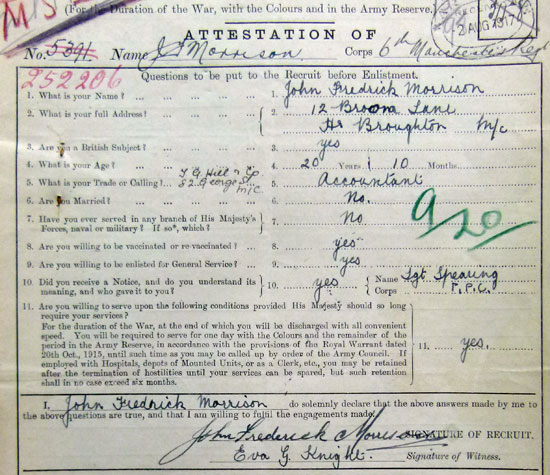 (For the Duration of the War, with the Colours and in the Army Reserve.)
2 AUG 1917
ATTESTATION OF
No. 5391. Name J F Morrison Corps 6th Manchester Reg
252206
Questions to be put to the Recruit before Enlistment.
1. What is your Name? 1. John Fredrick Morrison
2. What is your full Address? 2. 12 Broom Lane
Hr Broughton M/c
3. Are you a British Subject? 3. yes
4. What is your Age? 4. 20 Years 10 Months.
5. What is your Trade or Calling? T G Hill & Co 5. Accountant
52. George St M/c
6. Are you Married? 6. No.
7. Have you ever served in any branch of His Majesty's
Forces, naval or military? If so*, which? 7. No
9/20
8. Are you willing to be vaccinated or re-vaccinated? 8. yes
9. Are you willing to be enlisted for General Service? 9. yes
10. Did you receive a Notice, and do you understand its
meaning, and who gave it to you? 10. yes Name Sgt Spearing
Corps
11. Are you willing to serve upon the following conditions provided His Majesty should so long
require your services?
For the duration of the War, at the end of which you will be discharged with all convenient
speed. You will be required to serve for one day with the Colours and the remainder of
the period in the Army Reserve, in accordance with the provisions of the Royal Warrant dated
20th Oct., 1915, until such time as you may be called up by order of the Army Council. If
employed with Hospitals, depots of Mounted Units, or as a Clerk, etc., you may be retained
after the termination of hostilities until your services can be spared, but such retention
shall in no case exceed six months.
11. yes.
I, John Fredrick Morrison do solemnly declare that the above answers made by me to
the above questions are true, and that I am willing to fulfil the engagements made.
John Frederick Morrison SIGNATURE OF RECRUIT.
Eva G. Knight. Signature of Witness.